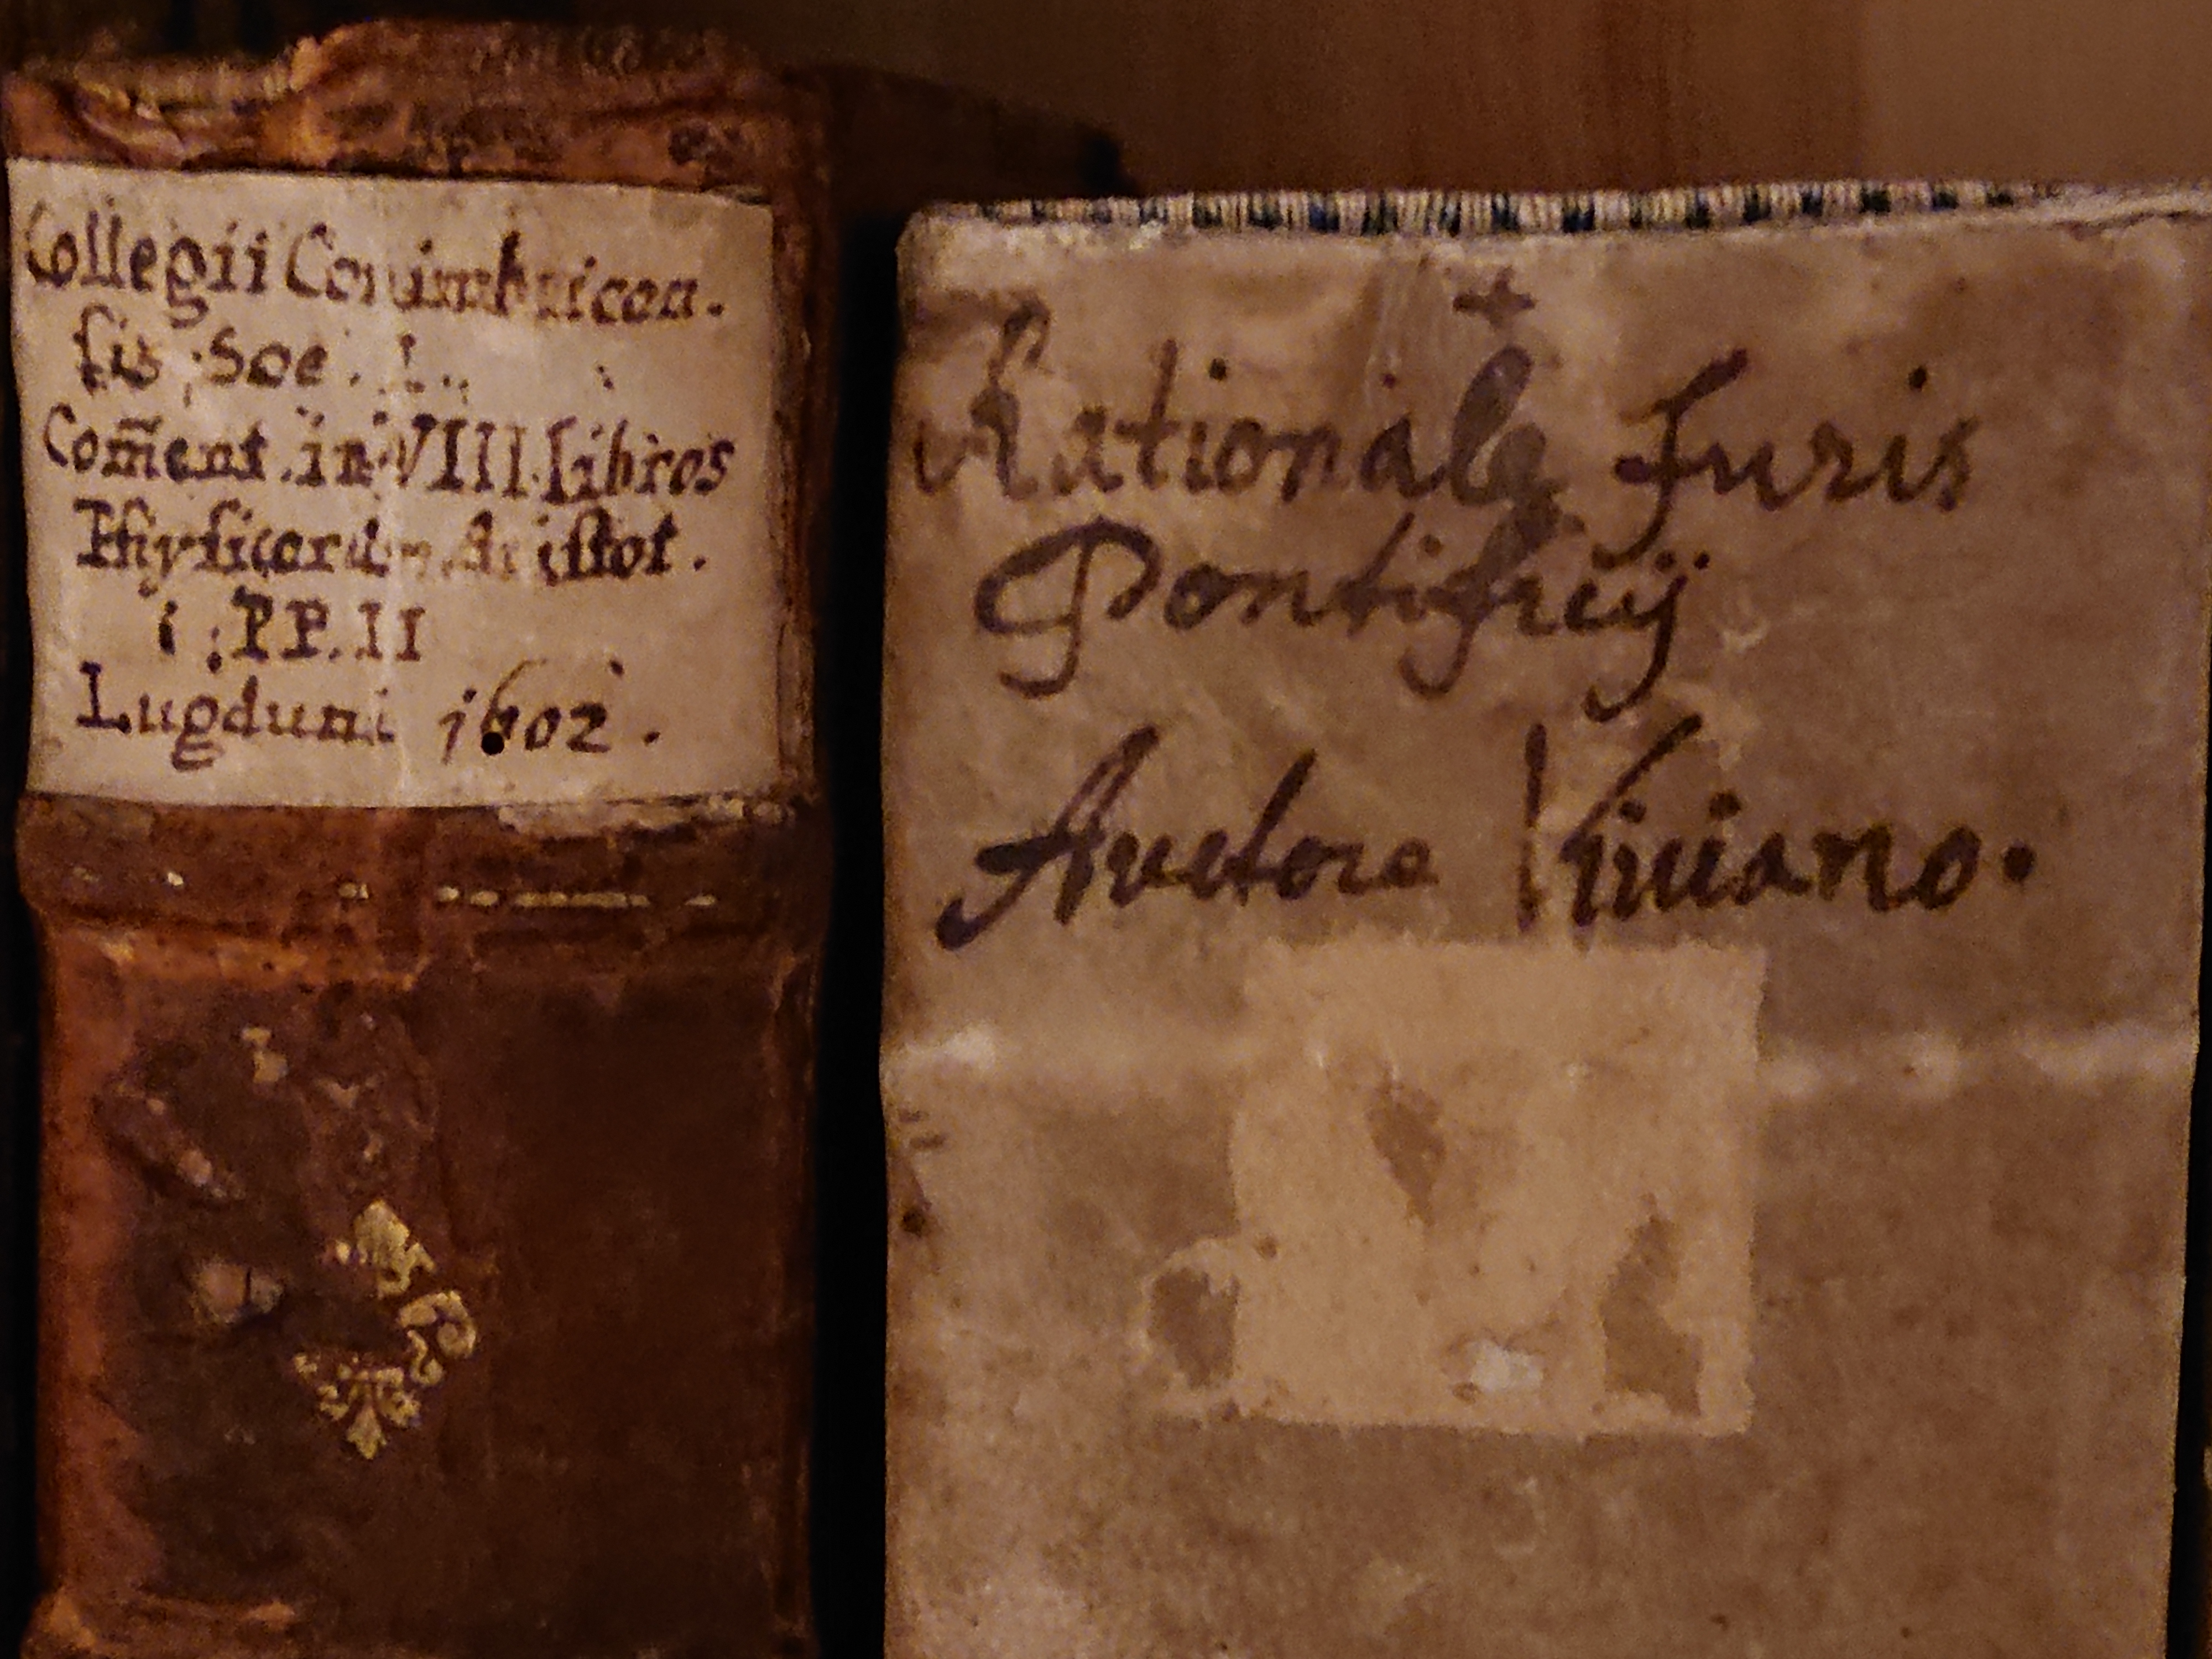 Collegii Conimbricen.
sis Soc.
Com̃ent. in VIII. libros
Physicorum Aristot.
i. PP. II
Lugduni 1602.
Rationale Juris
Pontificij
Auctore Viuiano.